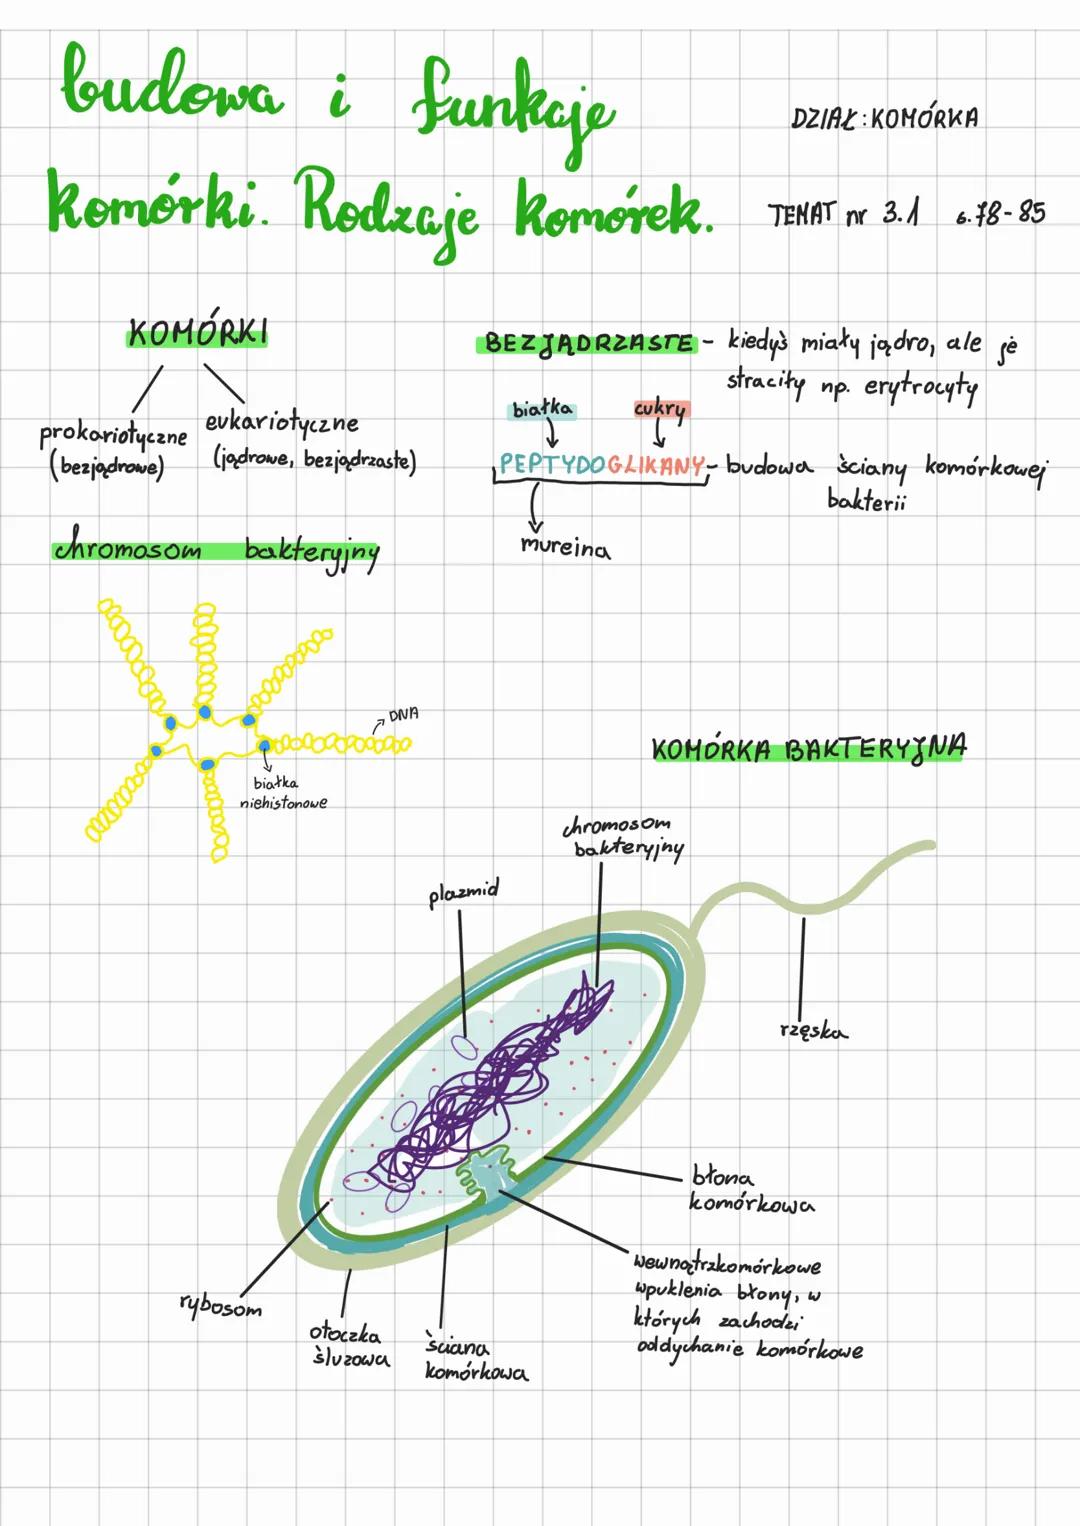 budowa i funkcje
DZIAŁ: KOMÓRKA
komórki. Rodzaje komórek.
TEMAT nr 3.1 s. 78-85
KOMÓRKI
prokariotyczne
(bezjądrowe)
eukariotyczne
(jądrowe, bezjądrzaste)
BEZJĄDRZASTE - kiedyś miały jądro, ale je
straciły np. erytrocyty
białka
cukry
PEPTYDOGLIKANY - budowa ściany komórkowej
bakterii
mureina
chromosom bakteryjny
DNA
białka
niehistonowe
KOMÓRKA BAKTERYJNA
chromosom
bakteryjny
plazmid
rzęska
błona
komórkowa
wewnątrzkomórkowe
wpuklenia błony, w
których zachodzi
oddychanie komórkowe
rybosom
otoczka
śluzowa
ściana
komórkowa